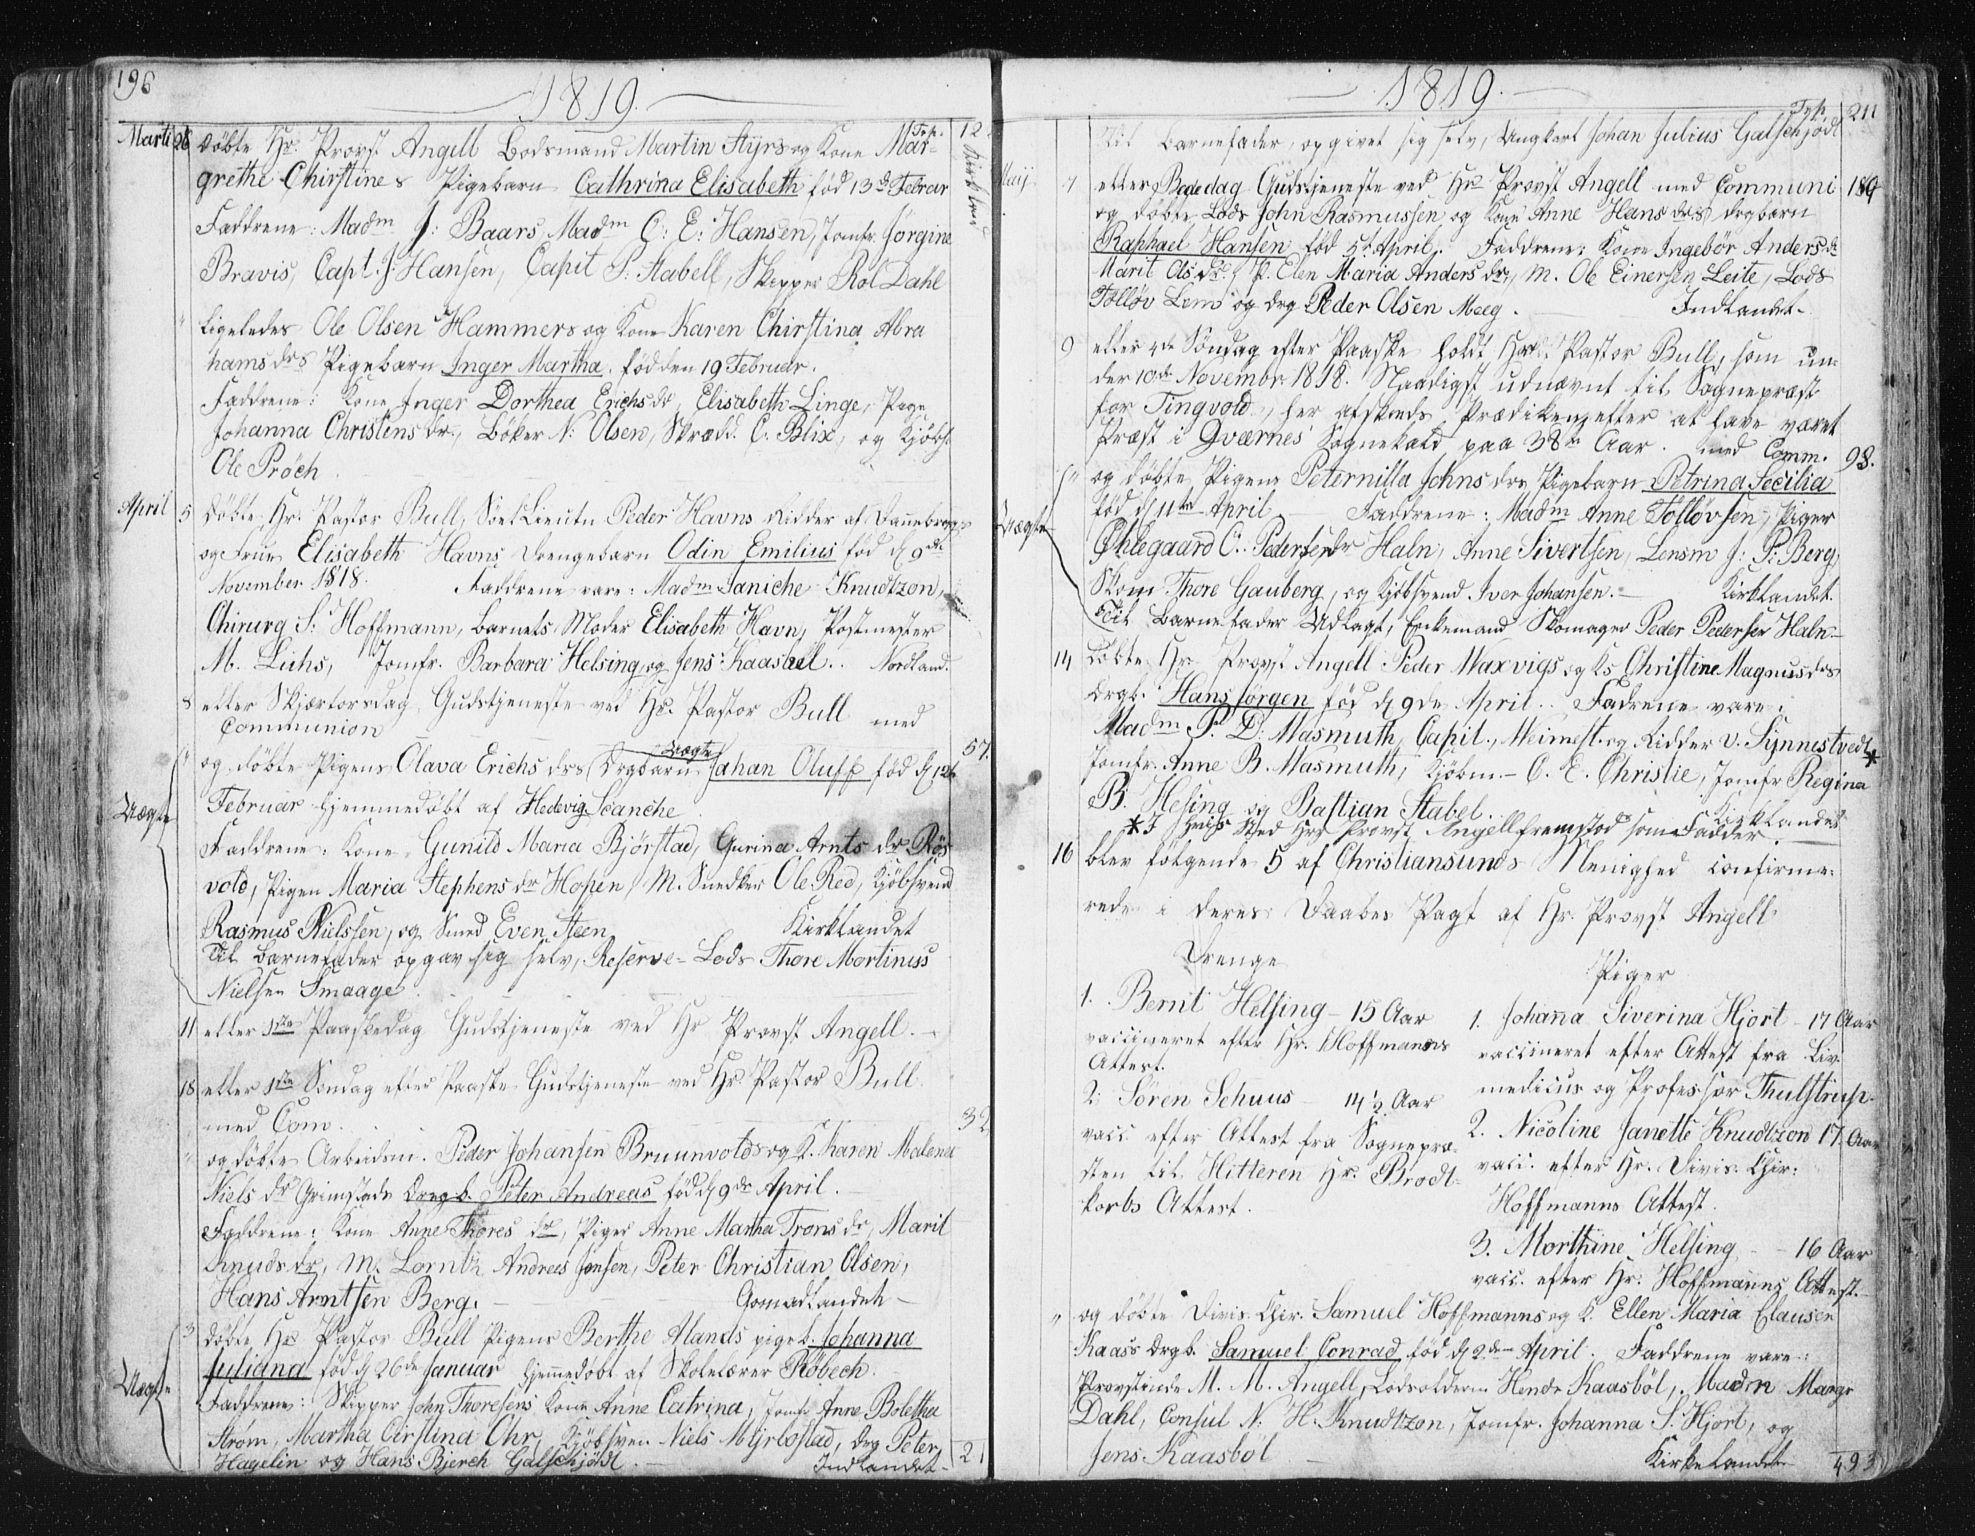 196
1819.
Tsp. 12
Marti 28 døbte Hr. Provst Angell Bodsmand Martin Styrs og Kone Mar-
grethe Chirstines Pigebarn Cathrina Elisabeth fød 13de Februar
Faddrene: Madm J: Baars, Madm C: E: Hansen, Jomfr. Jørgine
Bravis, Capt. J: Hansen, Capit P: Stabell, Skipper Rol Dahl
" Ligeledes Ole Olsen Hammers og Kone Karen Chirstina Abra
hams drs Pigebarn Inger Martha. fød den 19 Februar.
Faddrene: Kone Inger Dorthea Erichs dr, Elisabeth Linge, Pige
Johanna Christens dr., Bøker N: Olsen, Skræd. C. Blix, og Kjøbs.
Ole Prøch
April 5 døbte Hr. Pastor Bull, Søe Lieutn Peder Havns Ridder af Dannebroge
og Frue Elisabeth Havns Drengebarn Odin Emilius fød d 9de
November 1818. Faddrene vare: Madm Janiche Knudtzon,
Chirurg S: Hoffmann, barnets Moder Elisabeth Havn, Postmester
M. Lichs, Jomfr. Barbara Helsing og Jens Kaasbøl.. Nordland.
8 eller Skjærtorsdag Gudstjeneste ved Hr. Pastor Bull med
Communion 57.
" og døbte Pigens Olava Erichs drs Uægte Drgbarn Jahan Oluff fød d 12t
Februar hjemmedøbt af Hedevig Scanche
Uægte
Faddrene: Kone Gunild Maria Bjørstad, Gurina Arnts dr Røs
vold, Pigen Maria Stephens dr Hopen, M. Snedker Ole Red, Kjøbsvend
Rasmus Nielssen, og Smed Even Steen Kirklandet
Til Barnefader opgav sig selv, Reserve-Lods Thore Mortinuss
Nielsen Smaage
11 eller 1ste Paaskedag Gudstjeneste ved Hr Provst Angell.
18 eller 1ste Søndag efter Paaske Gudstjeneste ved Hr. Pastor Bull
med Com. 32
" og døbte Arbeidsm. Peder Johansen Bruunvolds og K. Karen Malena
Niels dr Grimstads Dregb. Peter Andreas fød d 9de April.
Faddrene: Kone Anne Thores dr, Piger Anne Martha Trons dr, Marit
Knuds dr, M. Lorntz Andreas Jensen, Peter Christian Olsen,
Hans Arntsen Berg. Gomadlandet
3 døbte Hr Pastor Bull Pigens Berthe Alands pigeb. Johanna
Juliana fød d 26de Januar hjemmedøbt af Skolelærer Røbech.
Uægte
Faddrene: Skipper John Thoresens Kone Anne Catrina, Jomfr Anne Boletha
Strøm, Martha Cirstina Chr, Kjøbsven Niels Myrbostad, drg Peter
Hagelin og Hans Bjerch Galschjødt. Indlandet 2
1819.
Tsp. 211
Til Barnefader, opgivet sig selv, Ungkarl Johan Julius Galschjødt
Maij 7 eller Bededag Gudstjeneste ved Hr. Provst Angell med Communi 189
og døbte Lods John Rasmussen og Kone Anne Hans drs drgbarn
Raphael Hansen fød 4t April. Faddrene: Kone Ingebør Anders dr
Marit Ols dr, P. Elen Maria Anders dr, M. Ole Einersen Leite, Lods
Tølløv Lem og drg Peder Olsen Meeg. Indlandet.
9 eller 4de Søndag efter Paaske holdt Hr. Pastor Bull, som un-
der 10de Novembr. 1818. Naadigst udnævnt til Sognepræst
for Tingvold, her afskeds Prædiken, efter at have været
Præst i Qværnes Sognekald paa 38te Aar. med Comm. 98.
" og døbte Pigens Peternilla Johns drs Pigebarn Petrina Secilia
fød d 11te April Faddrene: Madm Anne Tølløvsen, Piger
Uægte
Ohlegaard C. Pedersen dr Haln, Anne Sivertsen, Lensm J: P: Berg,
Skom Thore Gauberg, og Kjøbsvend Iver Johansen. Kirklandet.
Til Barnefader Udlagt, Enkemand Skomager Peder Pedersen Haln
14 døbte Hr Provst Angell Peder Waxvigs og Ks Christine Magnus drs
drgb. Hans Jørgen fød d 9de April.. Fadrene vare:
Madm P. D: Masmuth, Capit., Veimest. og Ridder v. Synnestvedt *
Jomfr. Anne B. Masmuth, Kjøbm. C. E. Christie, Jomfr Regina
B. Hesing og Bastian Stabel. Kirklandet
* I hvis Sted Hr Provst Angell fremstod som Fadder.
16 blev følgende 5 af Christiansunds Menighed confirme-
rede i deres Daabes Pagt af Hr. Provst Angell
Drenge
1. Bernt Helsing - 15 Aar
vaccineret efter Hr. Hoffmanns
Attest.
2: Søren Schuus - 14½ Aar
vacc efter Attest fra Sognepræ-
sten til Hitteren Hr. Brodt-
korbs Attest.
Piger
1. Johanna Siverina Hjort - 17 Aar
vaccineret efter Attest fra Liv-
medicus og Professor Thulstrup.
2. Nicoline Janette Knudtzon 17 Aar
vacc. efter Hr. Divis: Chir:
Hoffmanns Attest.
3. Morthine Helsing - 16 Aar
vacc. efter Hr: Hoffmanns Attest.
" og døbte Divis. Chir. Samuel Hoffmanns og K. Ellen Maria Clausen
Kaass drgb. Samuel Conrad fød d 2de April. Faddrene vare:
Provstinde M. M. Angell, Lodsolderm Hendr Kaasbøl, Madm Margr
Dahl, Consul N: H. Knudtzon, Jomfr. Johanna S. Hjort, og
Jens Kaasbøl Kirkelandet 493